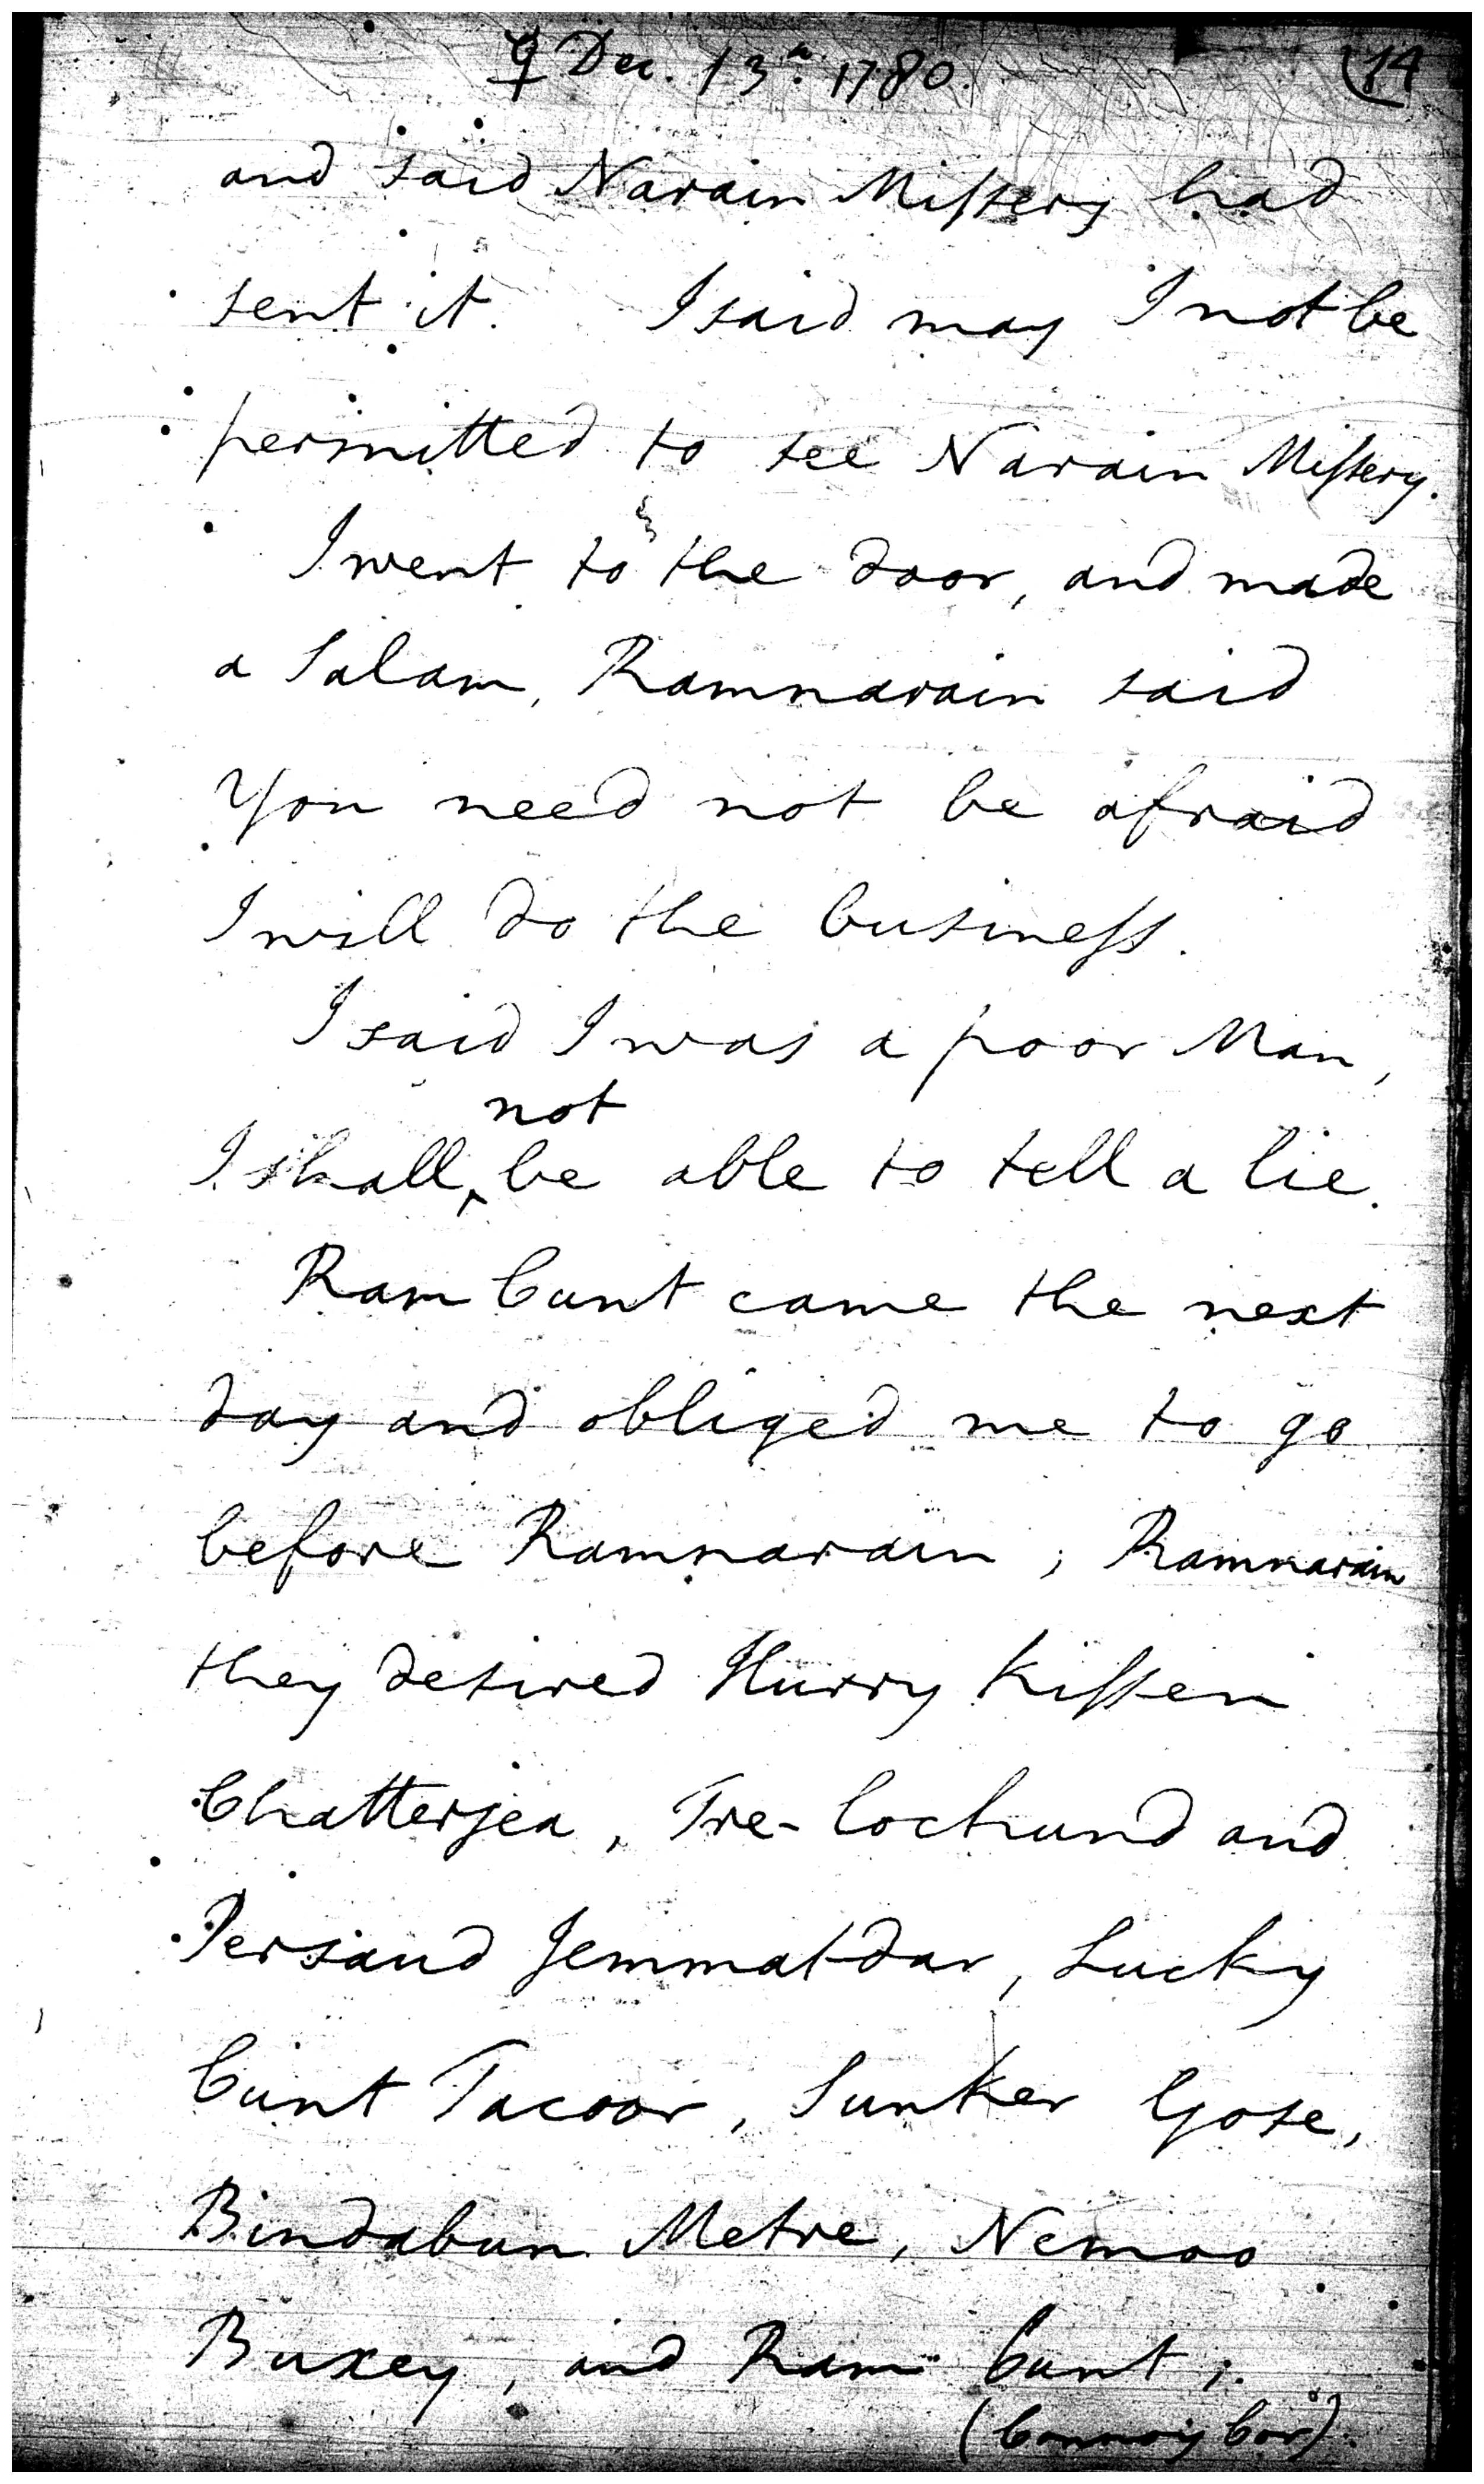 ♀ Dec. 13th. 1780. (14
and said Narain Missery had
sent it. I said may I not be
permitted to see Narain Missery.
I went to the door, and made
a Salam, Ramnarain said
You need not be afraid
I will do the business.
I said I was a poor Man,
not
I shall ‸ be able to tell a lie.
Ram Cunt came the next
day and obliged me to go
before Ramnarain ; Ramnarain
they desired Hurry Kissen
Chatterjea, Tre-lochund and
Persaud Jemmatdar, Lucky
Cunt Tacoor, Sunker Gose,
Bindabun Metre, Nemoo
Buxey, and Ram Cunt ;